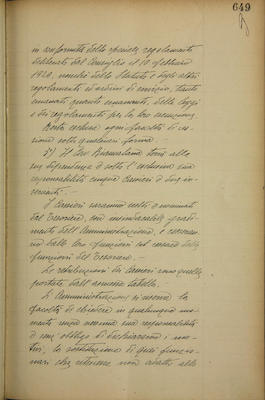 649
in conformità dello speciale regolamento
deliberato dal Consiglio il 10 febbraio
1920, nonchè dello Statuto e degli altri
regolamenti ed ordini di servizio, tanto
emanati quanto emanandi, delle leggi
e dei regolamenti per la loro esecuzione.
Resta esclusa ogni facoltà di
sotto qualsiasi forma.
5°) Il Cav. terrà alla
sua dipendenza e sotto l'esclusiva sua
responsabilità cinque Cassieri di sua
I Cassieri saranno scelti e nominati
dal Tesoriere, con insindacabile gradi-
mento dell'Amministrazione, e cesseran-
no dalle loro funzioni col cessare delle
funzioni del Tesoriere.
Le retribuzioni dei Cassieri sono quelle
portate dall'annessa tabella.
L'Amministrazione si riserva la
facoltà di chiedere in qualunque mo-
mento senza nessuna sua responsabilità
e senz'obbligo di dichiarazione i mo-
tivi, la sostituzione di quei funzio-
nari che ritenesse non adatti alle